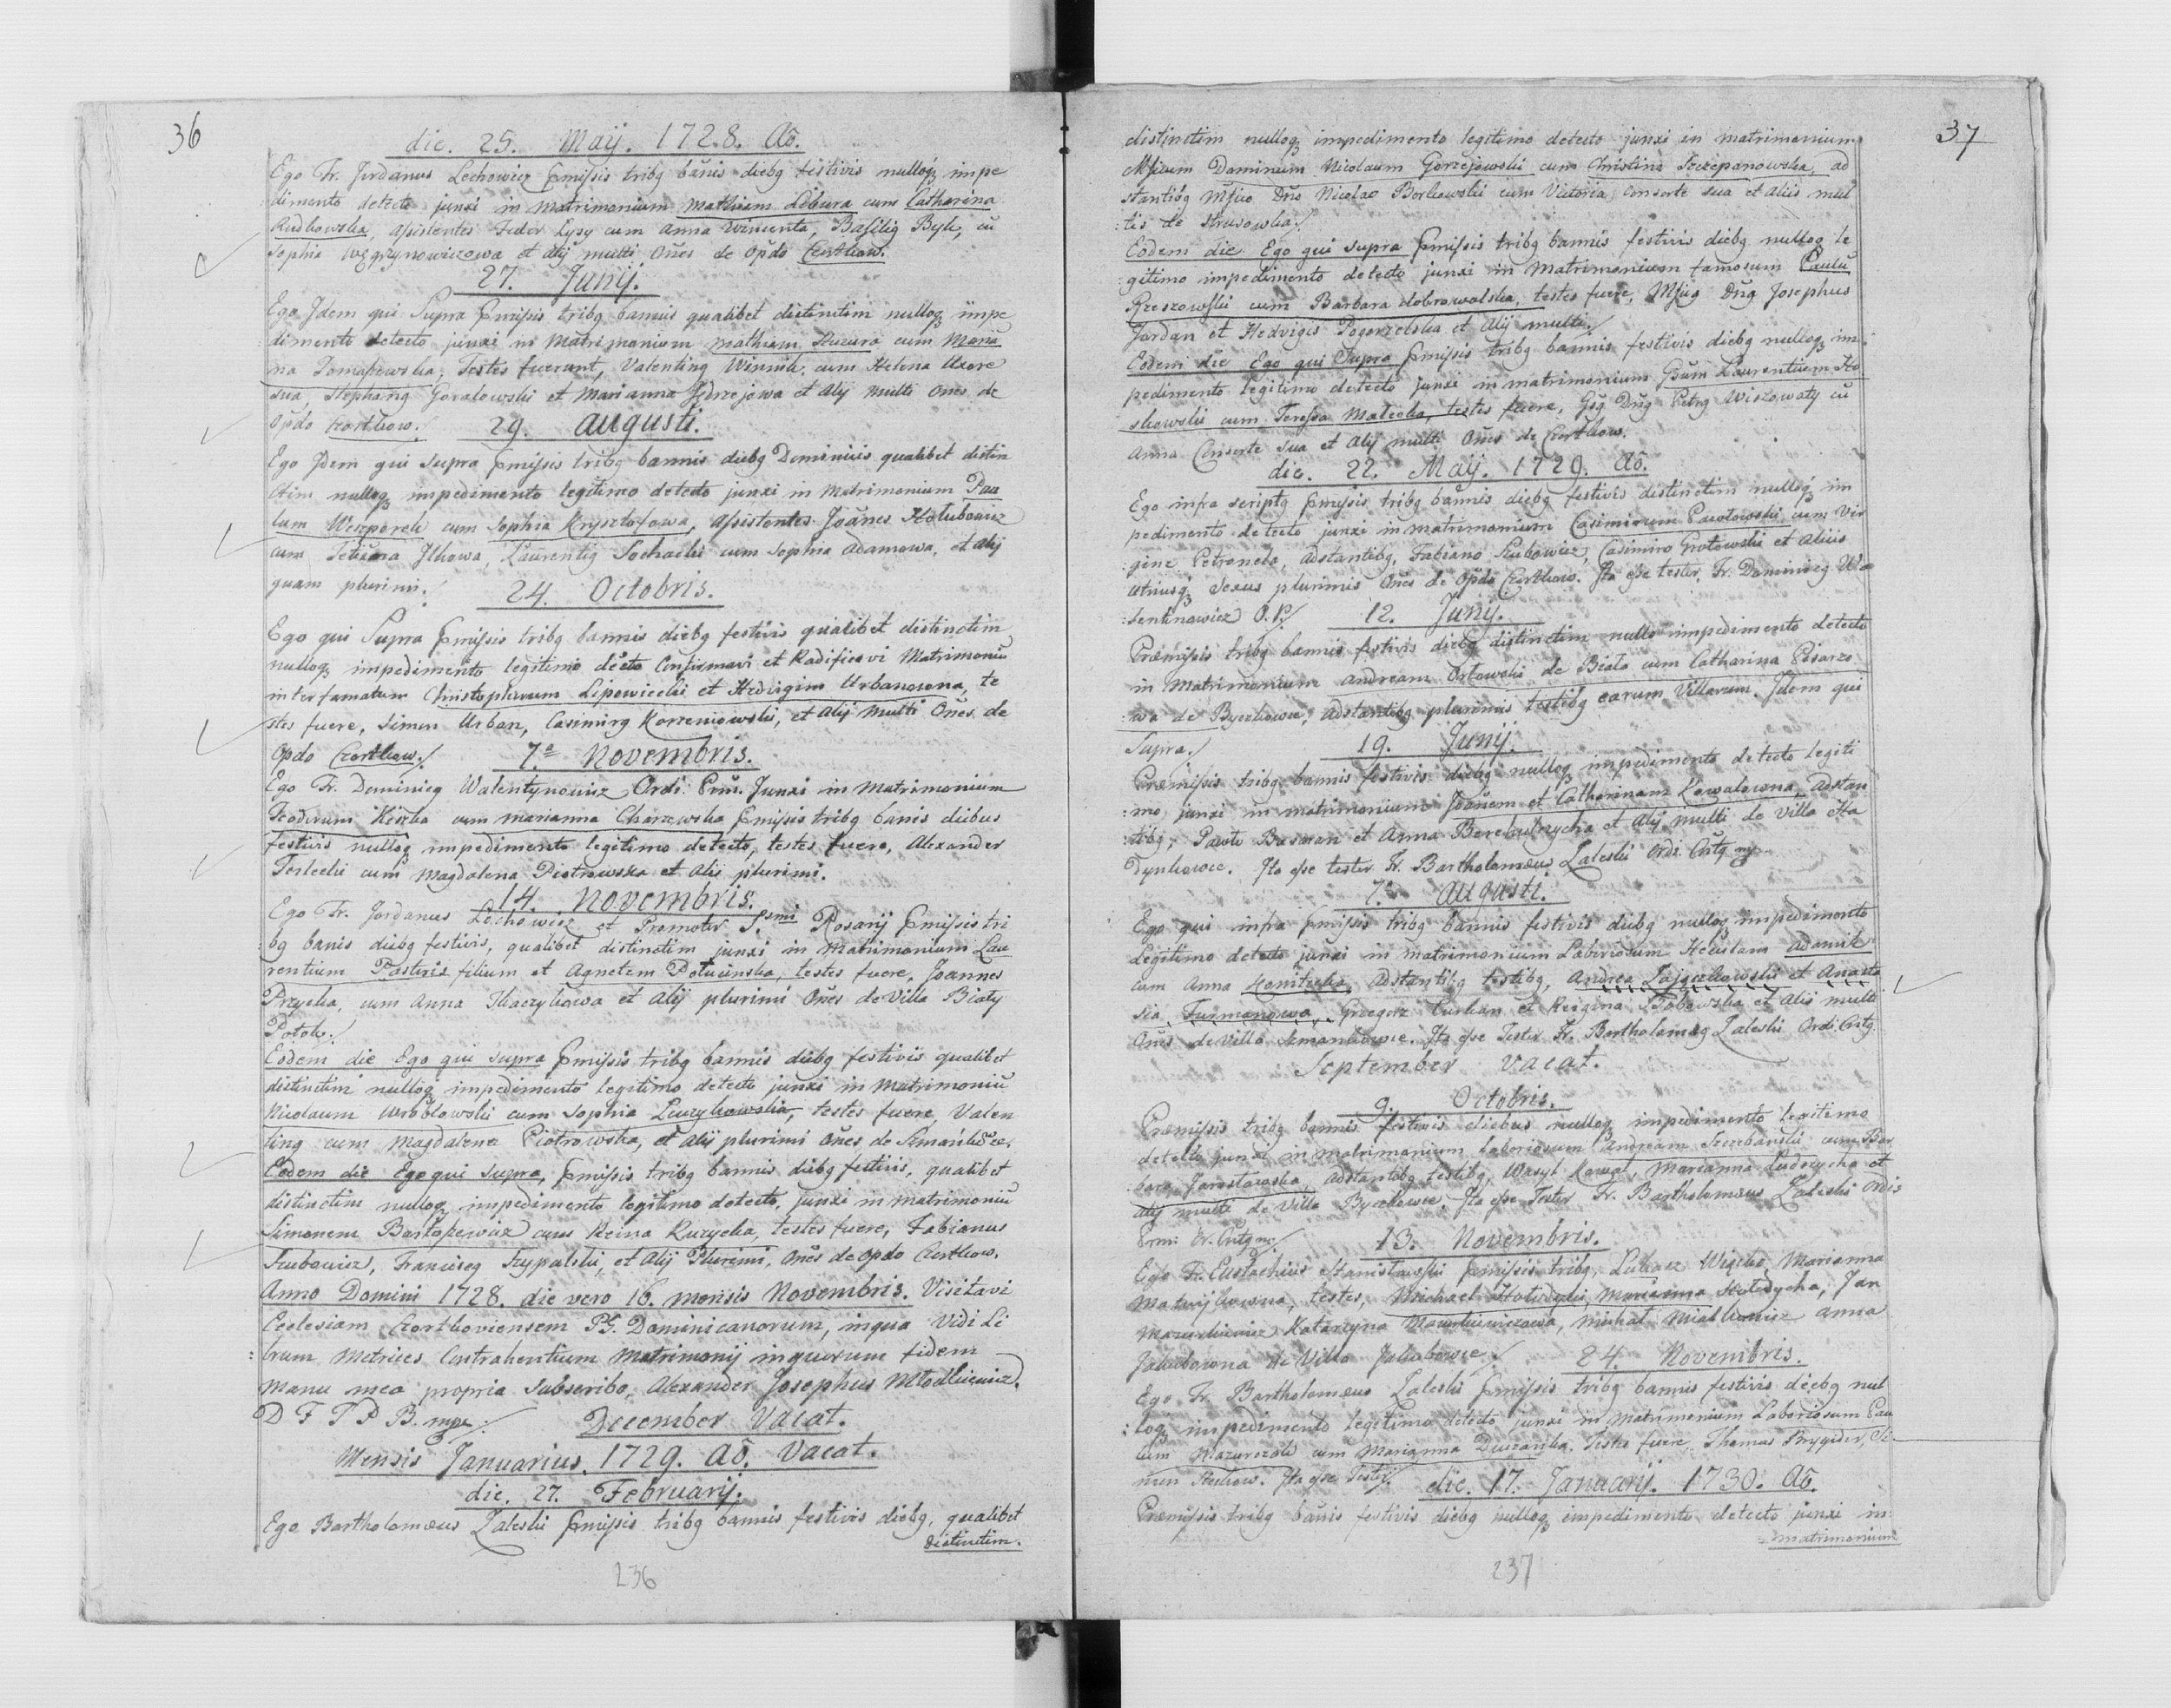 36
die. 25. Maij. 1728. Aō.
Ego Fr. Jordanus Lechowicz p̄missis tribq banis diebq festivis nulloq impe
dimento detecto junxi in matrimonium Mathiam Libura cum Catharina
Rudkowska, assistentes Fedor Lysy cum Anna, Basiliq Byk, cū
Sophia Węgrzynowiczowa et alij multi Om̄es de Opdo Czortkow.
27. Junij.
Ego Idem qui Supra p̄missis tribq bannis qualibet distinctim nulloq impe
dimento detecto junxi in Matrimonium Mathiam cum Maria
na Tomaszewska, Testes fuerunt, Valentinq Winnik cum Helena Uxore
sua, Stephanq Goralowski et Marianna Jędrzejowa et alij multi Om̄es de
Opdo Czortkow.
29. Augusti.
Ego Idem qui supra p̄missis tribq bannis diebq Dominicis qualibet distin
ctim nulloq impedimento legitimo detecto junxi in Matrimonium Pau
lum cum Sophia Krysztofowa, Assistentes Joānes Hołubowicz
cum Ilkowa, Laurentiq Sochacki cum Sophia Adamowa, et alij
quam plurimi.
24. Octobris.
Ego qui Supra p̄missis tribq bannis diebq festivis qualibet distinctim
nulloq impedimento legitimo dēcto Confirmavi et Radificavi Matrimoniū
inter famatum Christophorum Lipowiecki et Hedvigim Urbanowna, te
stes fuere, Simon Urban, Casimirq Korzeniowski, et alij multi Om̄es de
Opdo Czortkow.
7.a Novembris.
Ego Fr. Dominicq Walentynowicz Ordi: Prūi. Junxi in Matrimonium
Teodorum Kiszka cum Marianna Charzewska p̄missis tribq banis diebus
festivis nulloq impedimento legitimo detecto, testes fuere, Alexander
Terlecki cum Magdalena Piotrowska et alij plurimi.
14. Novembris.
Ego Fr. Jordanus Lechowicz et Promotor S.smi Rosarij p̄missis tri
bq banis diebq festivis, qualibet distinctim junxi in Matrimonium Lau
rentium Pastiris filium et Agnetem, testes fuere, Joannes
Przycka, cum Anna Tkaczykowa et alij plurimi Om̄es de Villa Biały
Potok.
Eodem die Ego qui supra p̄missis tribq bannis diebq festivis qualibet
distinctim nulloq impedimento legitimo detecto junxi in Matrimoniū
Nicolaum Wróblowski cum Sophia, testes fuere Valen
tinq cum Magdalena Piotrowska, et alij plurimi Om̄es de Szmańkowce.
Eodem die Ego qui supra, p̄missis tribq bannis diebq festivis, qualibet
distinctim nulloq impedimento legitimo detecto, junxi in matrimoniū
Simonem Bartoszewicz cum Reina Kuzycka, testes fuere, Fabianus
Szubowicz, Franciscq Szypalski, et alij Plurimi, Om̄es de Opdo Czortkow.
Anno Domini 1728. die vero 16. mensis Novembris. Visitavi
Ecclesiam Czortkoviensem PP. Dominicanorum, in qua Vidi Li
brum Metrices Contrahentium Matrimonij in quorum fidem
manu mea propria Subscribo, Alexander Josephus Młodkiewicz.
D F T P B. mpp.
December Vacat.
Mensis Januarius. 1729. Aō. Vacat.
die. 27. Februarij.
Ego Bartholomæus Zaleski p̄missis tribq bannis festivis diebq, qualibet
distinctim.
236
37
distinctim nulloq impedimento legitimo detecto junxi in matrimonium
Mficum Dominum Nicolaum Gorzejowski cum Christina Szczepanowska, ad
stantibq Mfico Dno Nicolao Borkowski cum Victoria Consorte sua et aliis mul
tis de Strusowka.
Eodem die Ego qui supra p̄missis tribq bannis festivis diebq nulloq le
gitimo impedimento detecto junxi in Matrimonium famosum Paulū
Rzeszowski cum Barbara Dobrowolska, testes fuere, Mficq Dnq Josephus
Jordan et Hedvigis Pogorzelska et alij multi.
Eodem die Ego qui Supra p̄missis tribq bannis festivis diebq nulloq im
pedimento legitimo detecto junxi in matrimonium Gsum Laurentium Ho
skowski cum Teressa Malecka, testes fuere, Gsq Dnq Petrq Wiszowaty cū
Anna Consorte Sua et alij multi Om̄es de Czortkow.
die. 22. Maij. 1729. Aō.
Ego infra scriptq p̄missis tribq bannis diebq festivis distinctim nulloq im
pedimento detecto junxi in matrimonium Casimirum Pawłowski cum Vir
gine Petronela, adstantibq, Fabiano Szubowicz, Casimiro Grotowski et aliis
utriusq Sexus plurimis Om̄es de Opdo Czortkow. Ita esse testor, Fr. Dominicq Wa
lentinowicz O. P.
12. Junij.
Præmissis tribq bannis festivis diebq distinctim nullo impedimento detecto
in Matrimonium Andream Orłowski de Biała cum Catharina Pisarzo
wa de Byczkowce, adstantibq plurimis testibq earum Villarum. Idem qui
Supra.
19. Junij.
Præmissis tribq bannis festivis diebq nulloq impedimento detecto legiti
mo, junxi in matrimonium Joānem et Catharinam Kowalowna, adstan
tibq, Pawło Basman et Anna et alij multi de Villa
. Ita esse testor Fr. Bartholomæus Zaleski Ordi.
7. Augusti.
Ego qui infra p̄missis tribq bannis festivis diebq nulloq impedimento
Legitimo detecto junxi in matrimonium Laboriosum Adamik
cum Anna, adstantibq testibq, Andrea Zajączkowski et Anasta
sia Furmanowa, Grzegorz et Reigina et alij multi
Om̄es de Villa Szmankowce. Ita esse Testor Fr. Bartholomæq Zaleski Ordi.
September Vacat.
9. Octobris.
Præmissis tribq bannis festivis diebus nulloq impedimento legitimo
detecto junxi in matrimonium laboriosum Andream Szczerbanski cum Bar
bara Jarosławska, adstantibq testibq, Wasyl Kowal, Marianna et
alij multi de Villa Byczkowce. Ita esse Testor Fr. Bartholomæus Zaleski Ordis
13. Novembris.
Ego Fr. Eustachius Stanisławski p̄missis tribq, Łukasz, Marianna
Matwijkowna, testes, Michael, Marianna, Jan
Mazurkiewicz Katarzyna Mazurkiewiczowa, Michał Anna
Jakubowna de Villa Jakubowce.
24. Novembris.
Ego Fr. Bartholomæus Zaleski p̄missis tribq bannis festivis diebq nul
loq impedimento legitimo detecto junxi in matrimonium Laboriosum Pau
lum Mazurczak cum Marianna. Testes fuere Thomas, Si
mon. Ita esse Testor.
die. 17. Januarij. 1730. Aō.
Præmissis tribq banis festivis diebq nulloq impedimento detecto junxi in
matrimonium
237